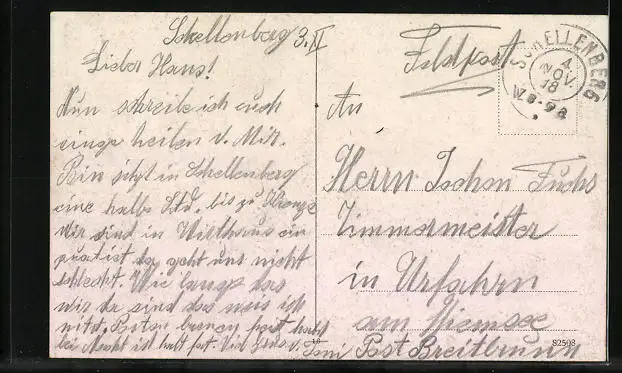 Schellenberg 3. XI
Lieber Hans!
Nun schreibe ich euch
einge heilen v. Mir.
Bin jetzt in Schellenberg
eine halbe Std. bis zu
Wir sind in Wirthaus ein
da geht uns nicht
schlecht. Wie lange das
wir da sind das weis ich
nit
bei Nacht ist halt Toni
Feldpost
SCHELLENBERG
4
NOV.
18
V 8-9a
An
Herrn Fuchs
Zimmermeister
in Urfahrn
am
Post Breitbrunn
82508